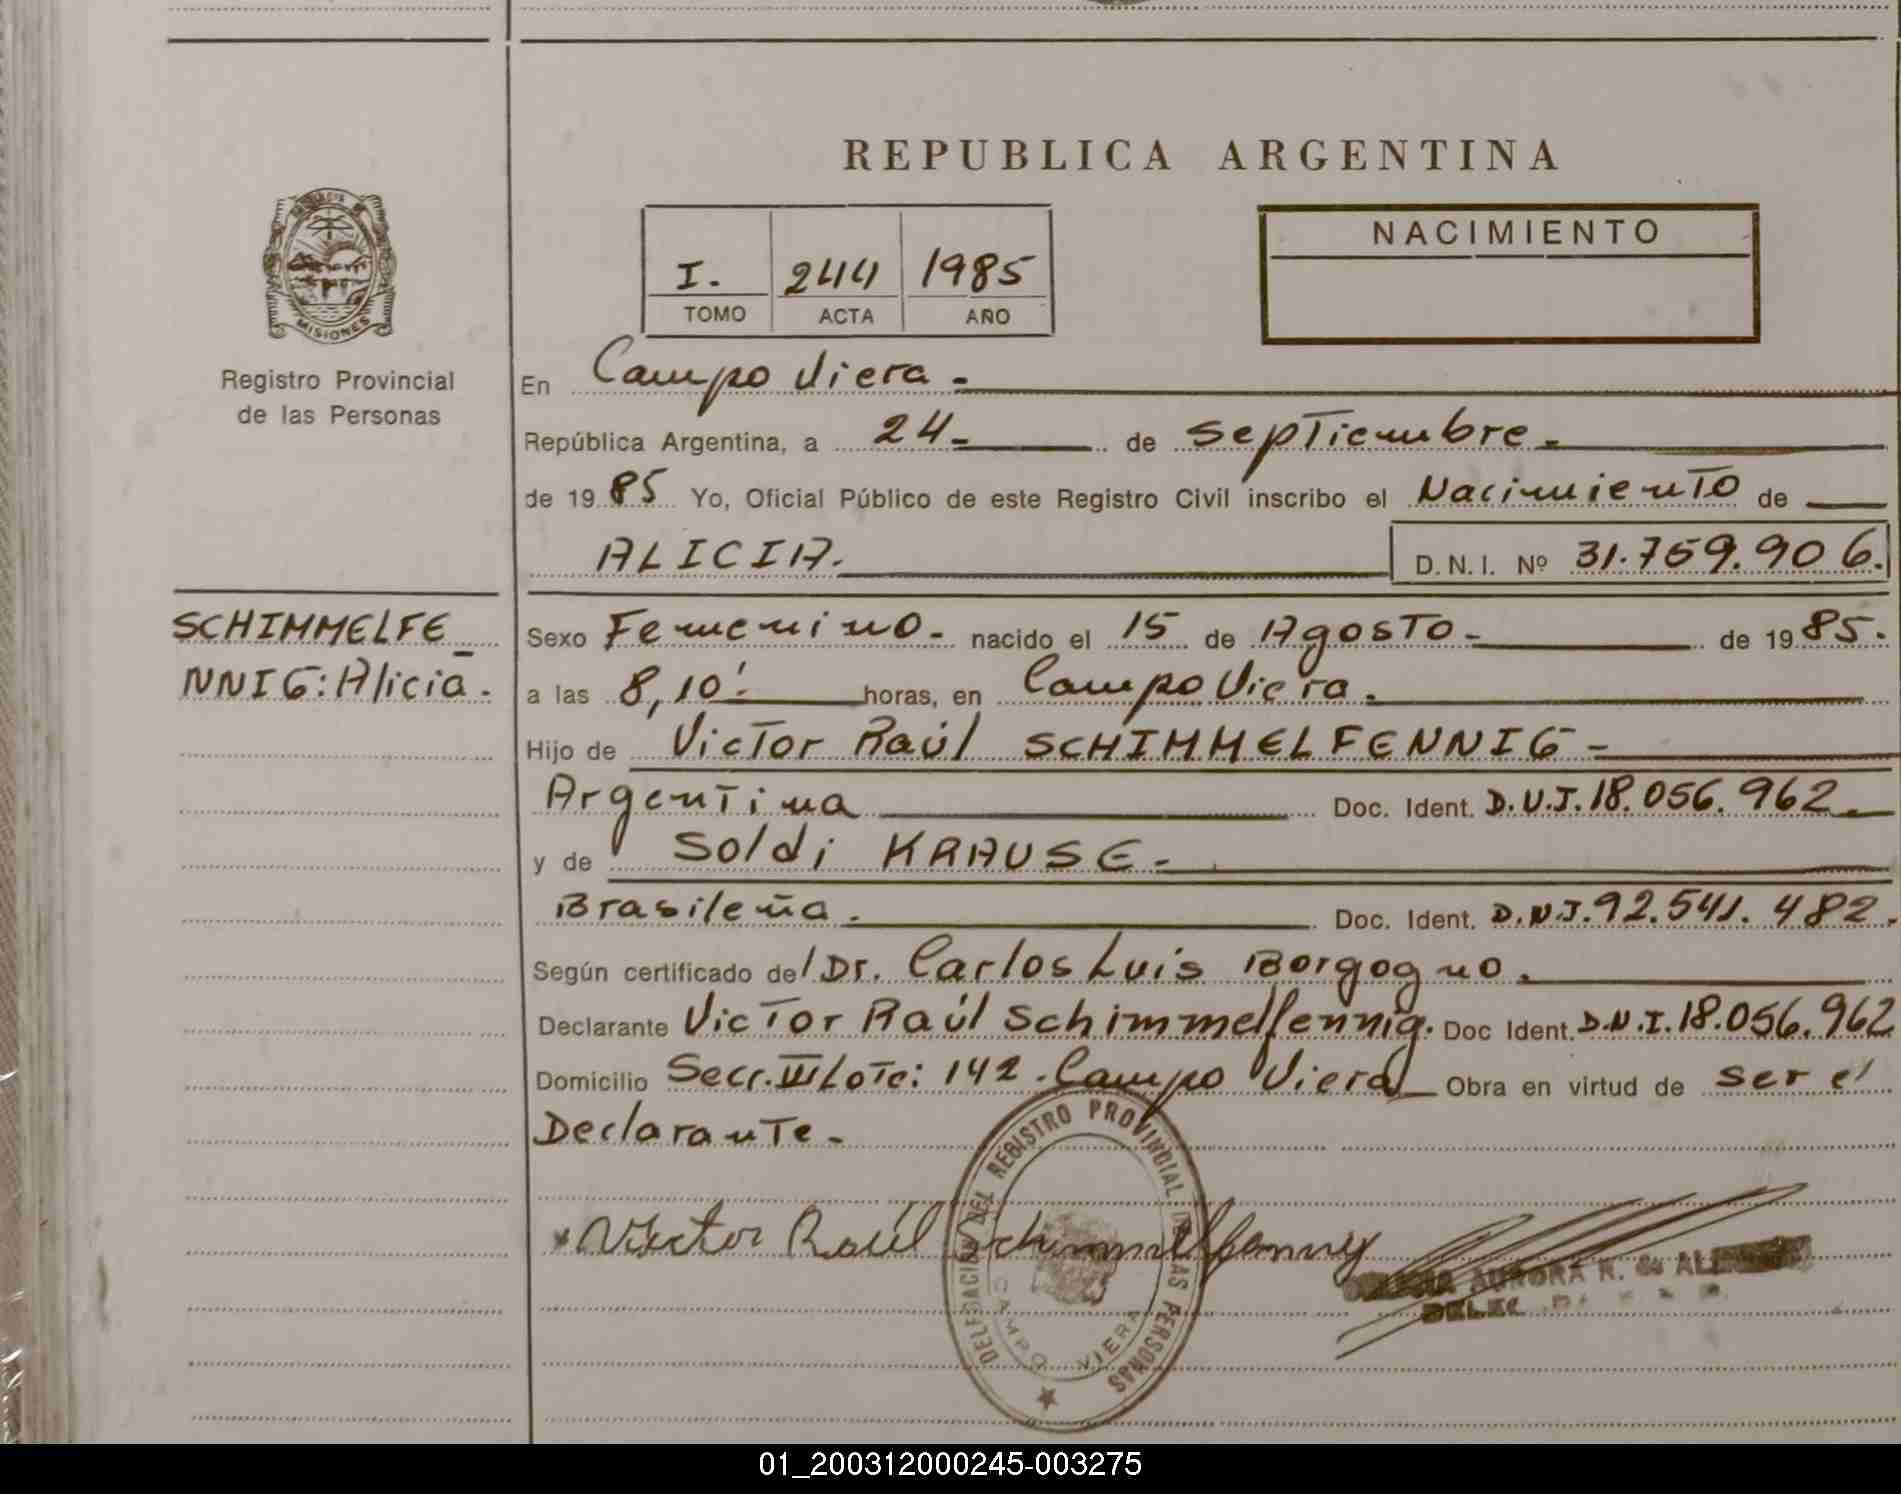 REPUBLICA ARGENTINA
NACIMIENTO
I. 244 1985
TOMO ACTA AÑO
MISIONES
Registro Provincial
de las Personas
En Campo Viera.
República Argentina, a 24 de Septiembre.
de 1985 Yo, Oficial Público de este Registro Civil inscribo el Nacimiento de
ALICIA. D.N.I. Nº 31.759.906.
SCHIMMELFE
NNIG: Alicia.
Sexo Femenino. nacido el 15 de Agosto. de 1985.
a las 8,10' horas, en Campo Viera.
Hijo de Victor Raúl SCHIMMELFENNIG
Argentina Doc. Ident. D.N.I. 18.056.962
y de Soldi KRAUSE.
Brasileña. Doc. Ident. D.N.I. 92.541.482.
Según certificado del Dr. Carlos Luis Borgogno.
Declarante Victor Raúl Schimmelfennig. Doc Ident. D.N.I. 18.056.962
Domicilio Secc. III Lote: 142. Campo Viera Obra en virtud de ser el
Declarante.
DELEGACION DEL REGISTRO PROVINCIAL DE LAS PERSONAS
CAMPO VIERA
Victor Raúl Schimmelfennig
AURORA
01_200312000245-003275